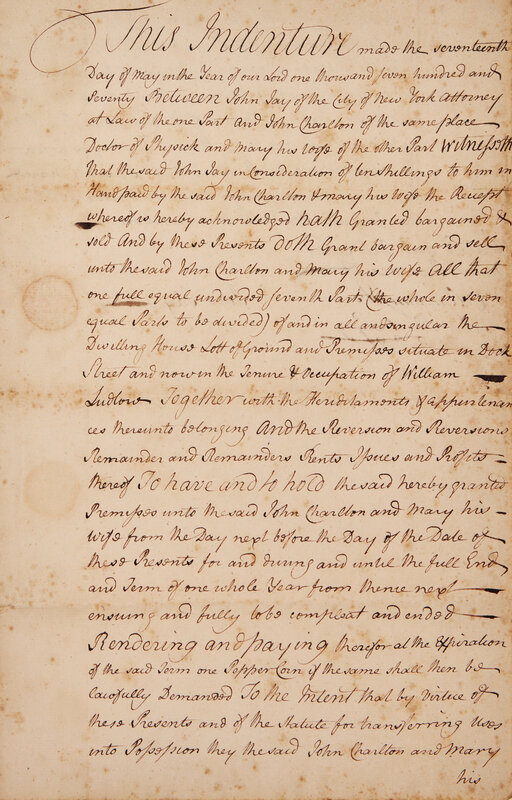 This Indenture made the seventeenth
Day of May in the Year of our Lord one thousand seven hundred and
Seventy Between John Jay of the City of New York Attorney
at Law of the one Part And John Charlton of the same place
Doctor of Physick and Mary his Wife of the other Part Witnesseth
that the said John Jay in Consideration of ten Shillings to him in
Hand paid by the said John Charlton & Mary his Wife the Receipt
whereof is hereby acknowledged hath Granted bargained &
sold And by these Presents Doth Grant bargain and sell
unto the said John Charlton and Mary his Wife All that
one full equal undivided seventh Part (the whole in seven
equal Parts to be divided) of and in all and singular the
Dwilling House Lott of Ground and Premisses situate in Dock
Street and now in the Tenure & Occupation of William
Ludlow Together with the Herditaments & appurtenan
ces thereunto belonging And the Reversion and Reversions
Remainder and Remainders Rents Issues and Profits
thereof To have and to hold the said hereby granted
Premisses unto the said John Charlton and Mary his
Wife from the Day next before the Day of the Date of
these Presents for and during and until the full End
and Term of one whole Year from thence next
ensuing and fully to be compleat and ended
Rendering and paying therefor at the Expiration
of the said Term one Pepper Corn if the same shall then be
lawfully Demanded To the Intent that by Virtue of
these Presents and of the Statute for transferring Uses
into Possession they the said John Charlton and Mary
his